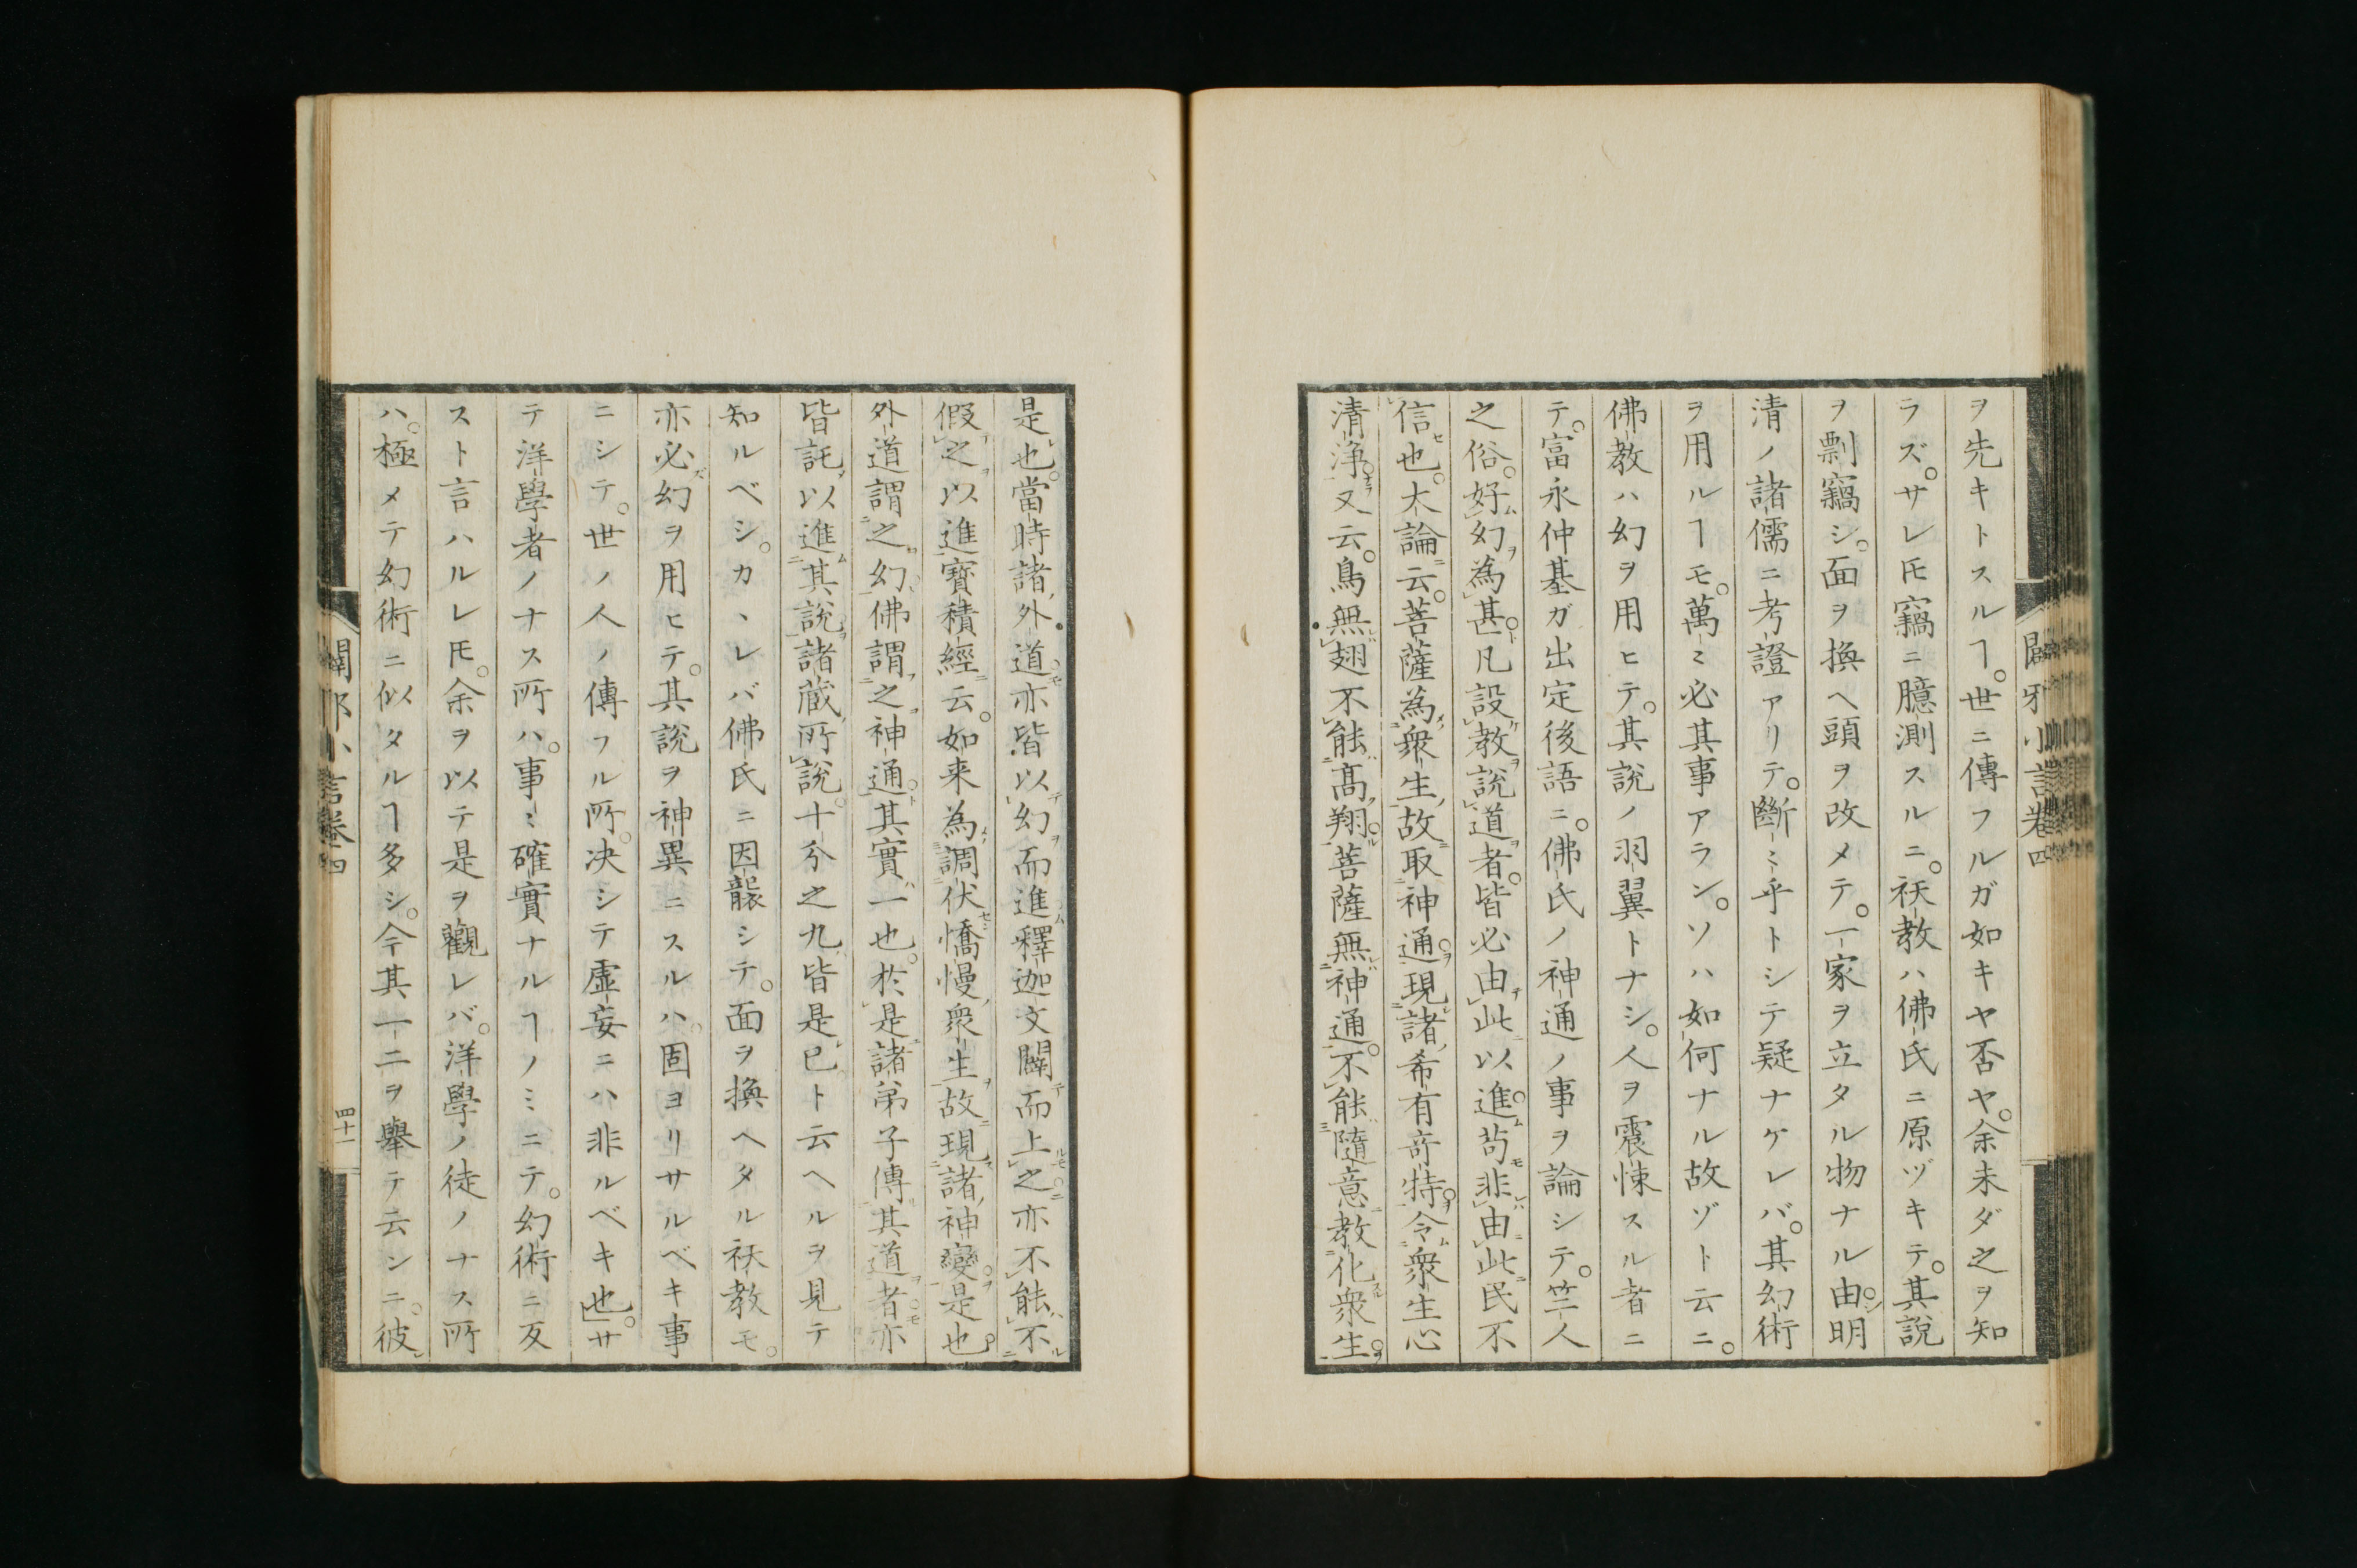 闢邪小言卷四
ヲ先キトスルヿ。世ニ傳フルガ如キヤ否ヤ。余未ダ之ヲ知
ラズ。サレ𪜈竊ニ臆測スルニ。祆教ハ佛氏ニ原ヅキテ。其說
ヲ剽竊シ。面ヲ換ヘ頭ヲ改メテ。一家ヲ立タル物ナル由。明
清ノ諸儒ニ考證アリテ。斷〻乎トシテ疑ナケレバ。其幻術
ヲ用ルヿモ。萬〻必其事アラン。ソハ如何ナル故ゾト云ニ。
佛教ハ幻ヲ用ヒテ。其說ノ羽翼トナシ。人ヲ震悚スル者ニ
テ。富永仲基ガ出定後語ニ。佛氏ノ神通ノ事ヲ論シテ。竺人
之俗。好幻為甚。凡設教說道者。皆必由此以進。苟非由此民不
信也。大論云。菩薩為衆生故取神通。現諸希有竒特。令衆生心
清淨。又云。鳥無翅不能高翔。菩薩無神通。不能隨意教化衆生。
是也。當時諸外道亦皆以幻而進。釋迦文闢而上之。亦不能不
假之以進。寶積經云。如来為調伏憍慢衆生故。現諸神變是也。
外道謂之幻。佛謂之神通。其實一也。於是諸弟子傳其道者。亦
皆託以進其說。諸蔵所說。十分之九皆是已ト云ヘルヲ見テ
知ルベシ。カヽレバ佛氏ニ因襲シテ。面ヲ換ヘタル祆教モ。
亦必幻ヲ用ヒテ。其說ヲ神異ニスルハ。固ヨリサルベキ事
ニシテ。世ノ人ノ傳フル所。决シテ虛妄ニハ非ルベキ也」。サ
テ洋學者ノナス所ハ。事〻確實ナルヿノミニテ。幻術ニ反
スト言ハルレ𪜈。余ヲ以テ是ヲ觀レバ。洋學ノ徒ノナス所
ハ。極メテ幻術ニ似タルヿ多シ。今其一二ヲ舉テ云ンニ。彼
闢邪小言卷四
四十一